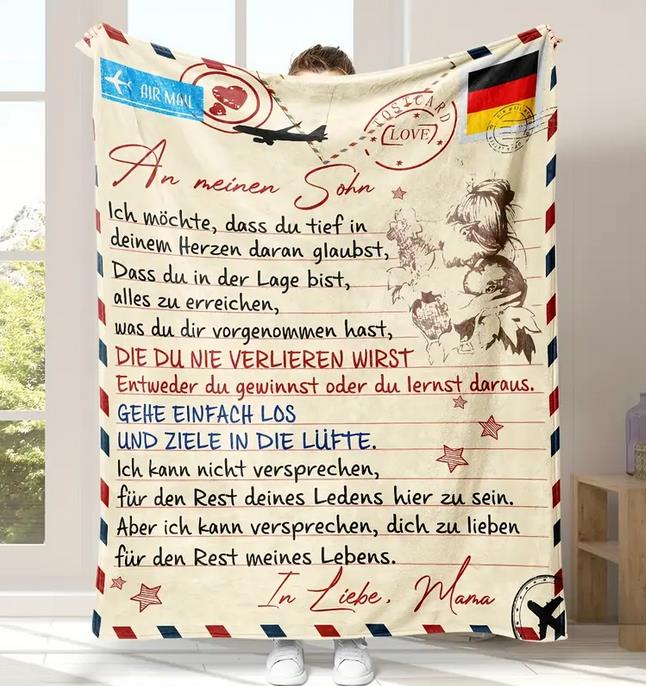 AIR MAIL
POSTCARD
LOVE
An meinen Sohn
Ich möchte, dass du tief in
deinem Herzen daran glaubst,
Dass du in der Lage bist,
alles zu erreichen,
was du dir vorgenommen hast,
DIE DU NIE VERLIEREN WIRST
Entweder du gewinnst oder du lernst daraus.
GEHE EINFACH LOS
UND ZIELE IN DIE LÜFTE.
Ich kann nicht versprechen,
für den Rest deines Ledens hier zu sein.
Aber ich kann versprechen, dich zu lieben
für den Rest meines Lebens.
In Liebe, Mama